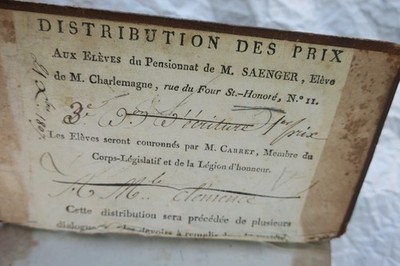 DISTRIBUTION DES PRIX
AUX ELÈVES du Pensionnat de M. SAENGER, Elève
de M. Charlemagne, rue du Four St.-Honoré, N.° 11.
3e D'Ecriture 1er Prix
Les Elèves seront couronnés par M. CARRET, Membre du
Corps-Législatif et de la Légion d'honneur.
A Mlle Clémence
Cette distribution sera précédée de plusieurs
dialogues, des devoirs à remplir